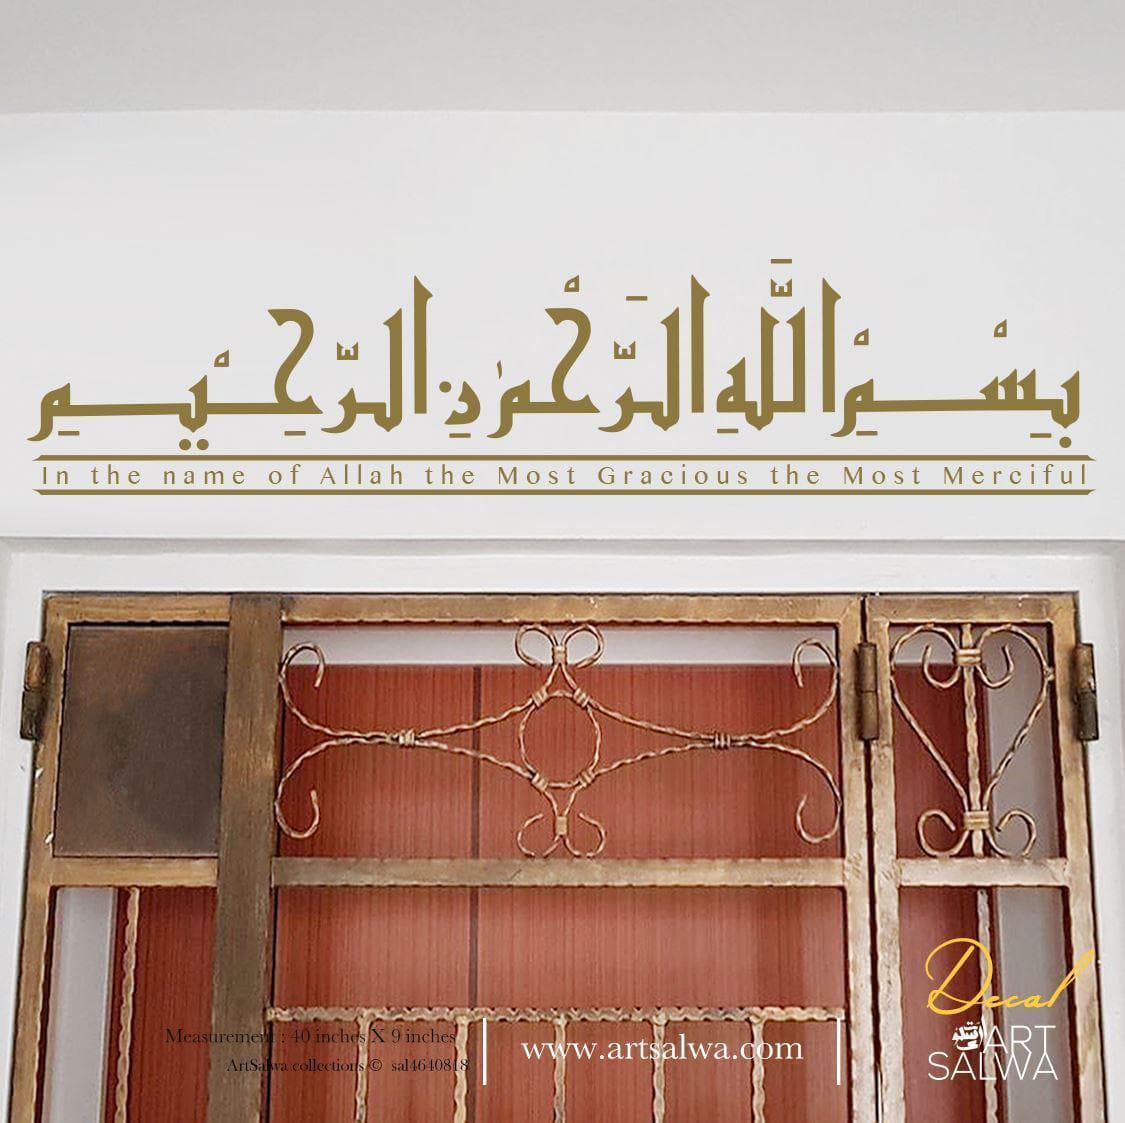 بِسْمِ اللَّهِ الرَّحْمَٰنِ الرَّحِيْمِ
In the name of Allah the Most Gracious the Most Merciful
Decal
Measurement : 40 inches X 9 inches
ArtSalwa collections © sal4640818
www.artsalwa.com
ART
SALWA